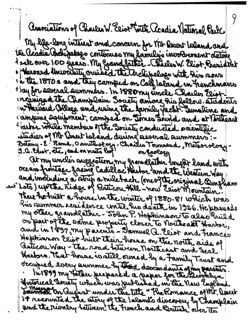 9
Associations of Charles W. Eliot with Acadia National Park
My life-long interest and concern for Mt Desert Island, and
the Acadia Archipelago continues my family's involvement dating
over 100 years. My Grandfather - Charles W. Eliot, President
of Harvard University cruised the Archipelago with his sons
in the 1870s and they camped on Calf Island in Frenchmans
Bay for several summers. In 1880 my uncle Charles Eliot
organized the Champlain Society among his fellow students
at Harvard College and, using the family yacht "Sunshine" and
camping equipment, camped on Somes Sound and at Northeast
Harbor while members of the Society conducted scientific
studies of Mt Desert Island during several summers:
Botany - E. Rand, Ornithology - Charles Townsend, Meteorology
etc, and
Geology
At my uncle's suggestion, my grandfather bought land with
ocean frontage facing Cadillac Harbor and the Western Way
and including a
up the ridge of Asticou Hill - now Eliot Mountain.
There he built a house in the winter of 1880-81 which was
his summer residence until his death in 1926. He persuaded
my other grandfather - John P. Hopkinson to also build
on part of the same property closer to Northeast Harbor,
and in 1897 my parents - Samuel A. Eliot and Frances
Hopkinson Eliot built their house on the north side of
Asticou Way - the road between Northeast and Seal
Harbors. That house is still owned by a Family Trust and
occupied every summer by descendants of my parents.
In 1899 my Father prepared a paper for the
historical society which was published in the New England
in August under the title "The Romance of Mt. Desert"
It recounted the story of the Island's discovery by Champlain
and the rivalry between the French and British over its